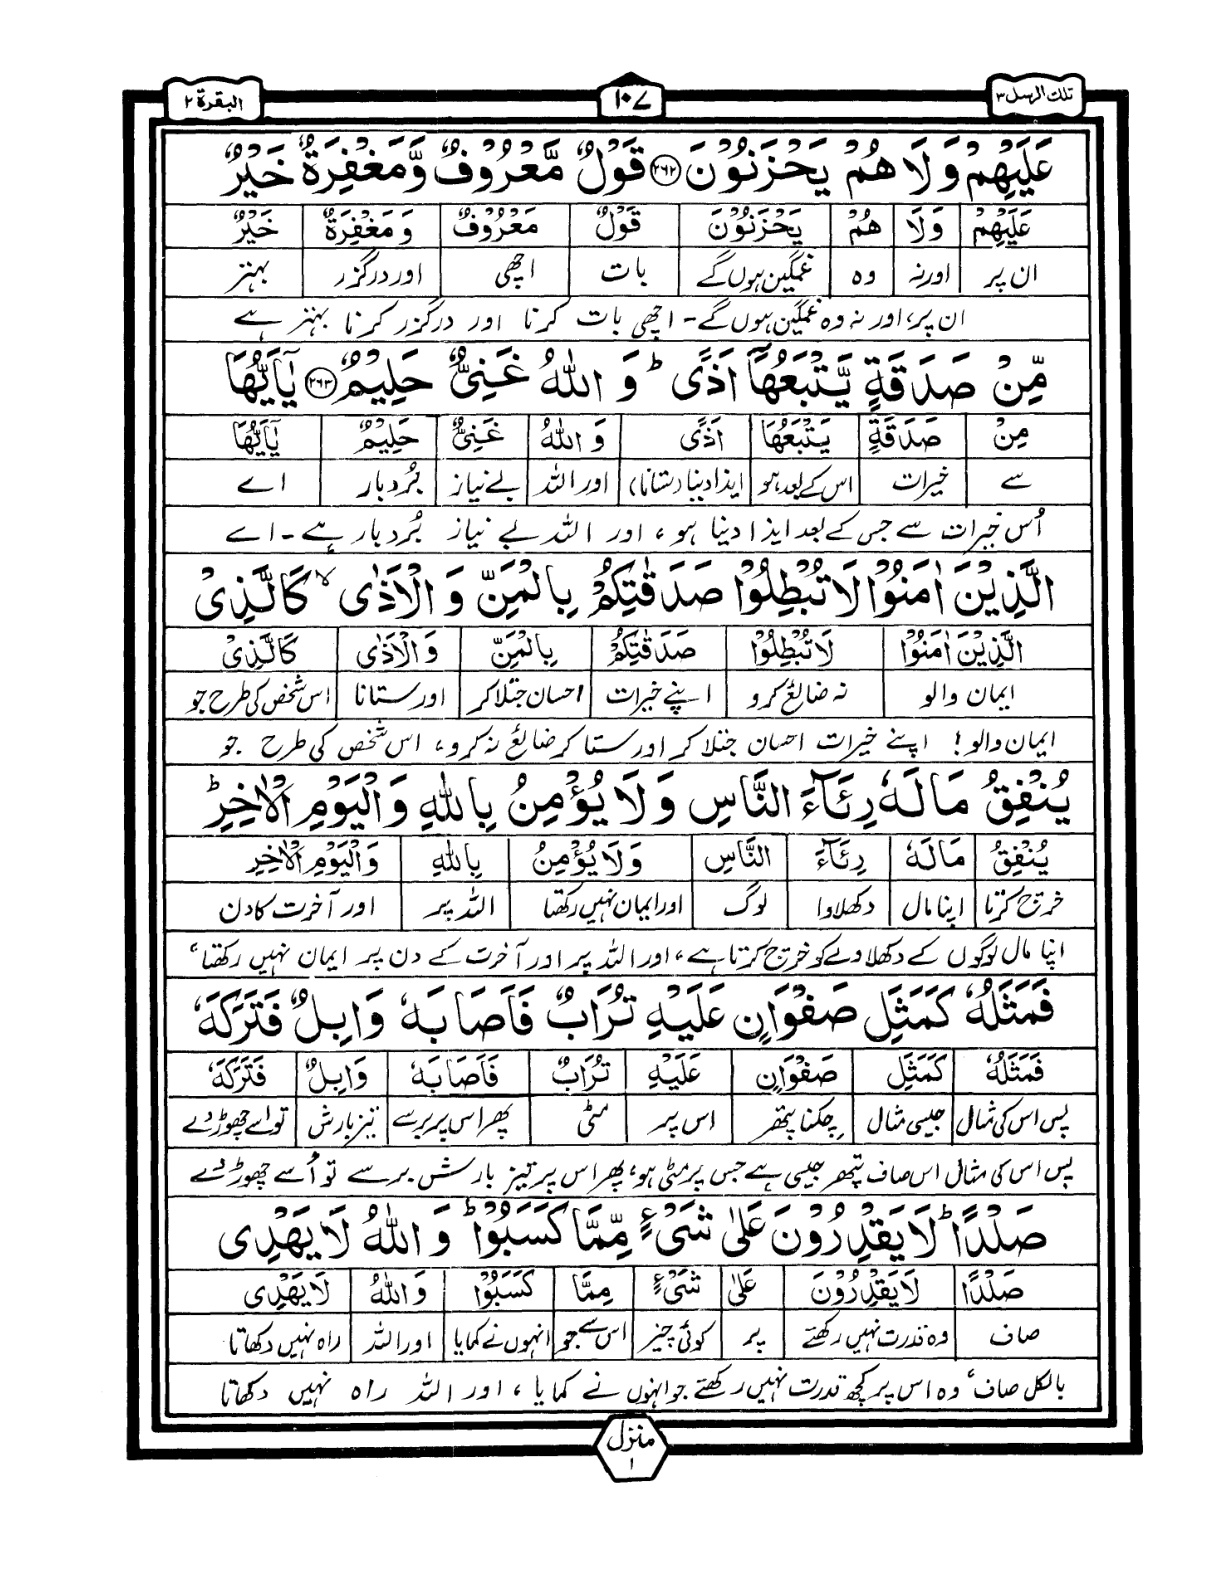 تلك الرسل ۳
۱۰۷
البقرة ۲
عَلَيْهِمْ وَلَا هُمْ يَحْزَنُوْنَ ﴿۲۶۲﴾ قَوْلٌ مَّعْرُوْفٌ وَّمَغْفِرَةٌ خَيْرٌ
عَلَيْهِمْ وَلَا هُمْ يَحْزَنُوْنَ قَوْلٌ مَعْرُوْفٌ وَ مَغْفِرَةٌ خَيْرٌ
ان پر اور نہ وہ غمگین ہوں گے بات اچھی اور درگزر بہتر
ان پر، اور نہ وہ غمگین ہوں گے - اچھی بات کرنا اور درگزر کرنا بہتر ہے
مِّنْ صَدَقَةٍ يَّتْبَعُهَآ اَذًى ؕ وَ اللّٰهُ غَنِيٌّ حَلِيْمٌ ﴿۲۶۳﴾ يٰٓاَيُّهَا
مِنْ صَدَقَةٍ يَتْبَعُهَا اَذًى وَ اللّٰهُ غَنِيٌّ حَلِيْمٌ يٰٓاَيُّهَا
سے خیرات اس کے بعد ہو ایذا دینا (ستانا) اور اللہ بے نیاز بُردبار اے
اُس خیرات سے جس کے بعد ایذا دینا ہو، اور اللہ بے نیاز بُردبار ہے - اے
الَّذِيْنَ اٰمَنُوْا لَا تُبْطِلُوْا صَدَقٰتِكُمْ بِالْمَنِّ وَ الْاَذٰى ۙ كَالَّذِيْ
الَّذِيْنَ اٰمَنُوْا لَا تُبْطِلُوْا صَدَقٰتِكُمْ بِالْمَنِّ وَ الْاَذٰى كَالَّذِيْ
ایمان والو نہ ضائع کرو اپنے خیرات احسان جتلا کر اور ستانا اس شخص کی طرح جو
ایمان والو! اپنے خیرات احسان جتلا کر اور ستا کر ضائع نہ کرو، اس شخص کی طرح جو
يُنْفِقُ مَالَهٗ رِئَآءَ النَّاسِ وَ لَا يُؤْمِنُ بِاللّٰهِ وَ الْيَوْمِ الْاٰخِرِ ؕ
يُنْفِقُ مَالَهٗ رِئَآءَ النَّاسِ وَلَا يُؤْمِنُ بِاللّٰهِ وَ الْيَوْمِ الْاٰخِرِ
خرچ کرتا اپنا مال دکھلاوا لوگ اور ایمان نہیں رکھتا اللہ پر اور آخرت کا دن
اپنا مال لوگوں کے دکھلاوے کو خرچ کرتا ہے، اور اللہ پر اور آخرت کے دن پر ایمان نہیں رکھتا،
فَمَثَلُهٗ كَمَثَلِ صَفْوَانٍ عَلَيْهِ تُرَابٌ فَاَصَابَهٗ وَابِلٌ فَتَرَكَهٗ
فَمَثَلُهٗ كَمَثَلِ صَفْوَانٍ عَلَيْهِ تُرَابٌ فَاَصَابَهٗ وَابِلٌ فَتَرَكَهٗ
پس اس کی مثال جیسی مثال چکنا پتھر اس پر مٹی پھر اس پر برسے تیز بارش تو اسے چھوڑ دے
پس اس کی مثال اس صاف پتھر جیسی ہے جس پر مٹی ہو، پھر اس پر تیز بارش برسے تو اُسے چھوڑ دے
صَلْدًا ؕ لَا يَقْدِرُوْنَ عَلٰى شَيْءٍ مِّمَّا كَسَبُوْا ؕ وَ اللّٰهُ لَا يَهْدِى
صَلْدًا لَا يَقْدِرُوْنَ عَلٰى شَيْءٍ مِمَّا كَسَبُوْا وَ اللّٰهُ لَا يَهْدِى
صاف وہ قدرت نہیں رکھتے پر کوئی چیز اس سے جو انہوں نے کمایا اور اللہ راہ نہیں دکھاتا
بالکل صاف، وہ اس پر کچھ قدرت نہیں رکھتے جو انہوں نے کمایا، اور اللہ راہ نہیں دکھاتا
منزل
۱